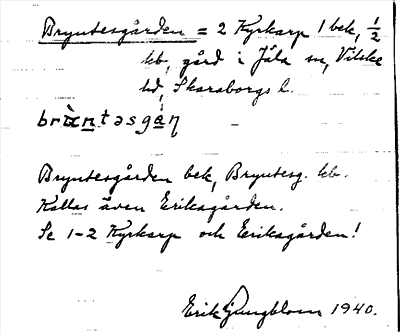 Bryntesgården = 2 Kyrkarp 1 bek, 1/2
kb, gård i Jäla sn, Vilske
hd, Skaraborgs l.
brǜn̲tasgá̲ɳ
Bryntesgården bek, Bryntesg. kb.
Kallas även Eriksgården.
Se 1-2 Kyrkarp och Eriksgården!
Erik Ljungblom 1940.